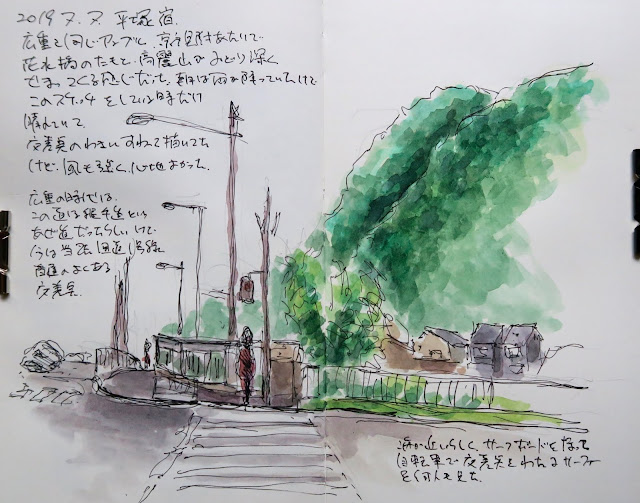 2019 7.7 平塚宿.
広重と同じアングル、京方見附あたりで
花水橋のたもと、高麗山がみどり深く
せまってくる感じだった、朝は雨が降っていたけど
このスケッチをしている時だけ
晴れていて
交差点のわきにすわって描いてた
けど、風も強く、心地よかった.
広重の時代は、
この道は縄手道という
あぜ道だったらしいけど
今は当然国道1号線
普通によくある
交差点.
海が近いらしく、サーフボードをもって
自転車で交差点をわたるサーファー
を何人も見た